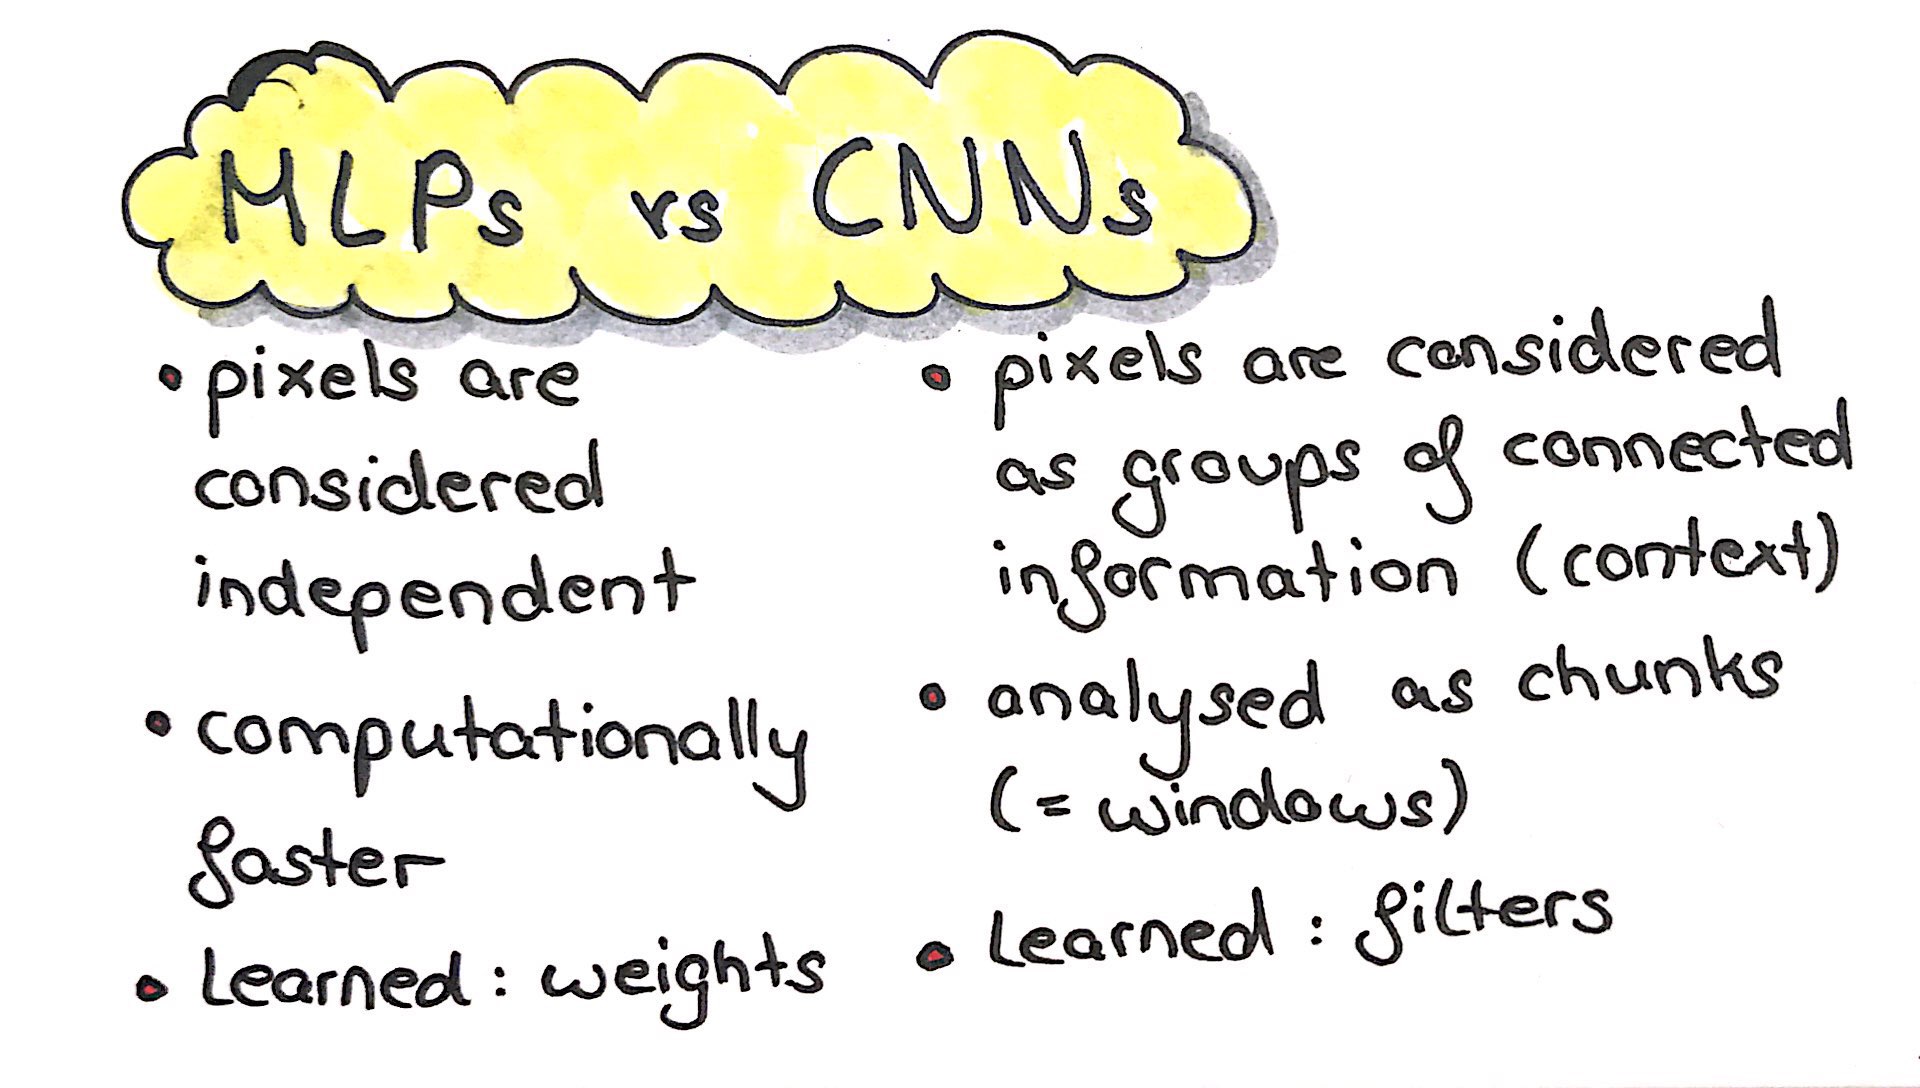 MLPs vs CNNs
• pixels are
considered
independent
• computationally
faster
• Learned: weights
• pixels are considered
as groups of connected
information (context)
• analysed as chunks
(= windows)
• Learned: filters